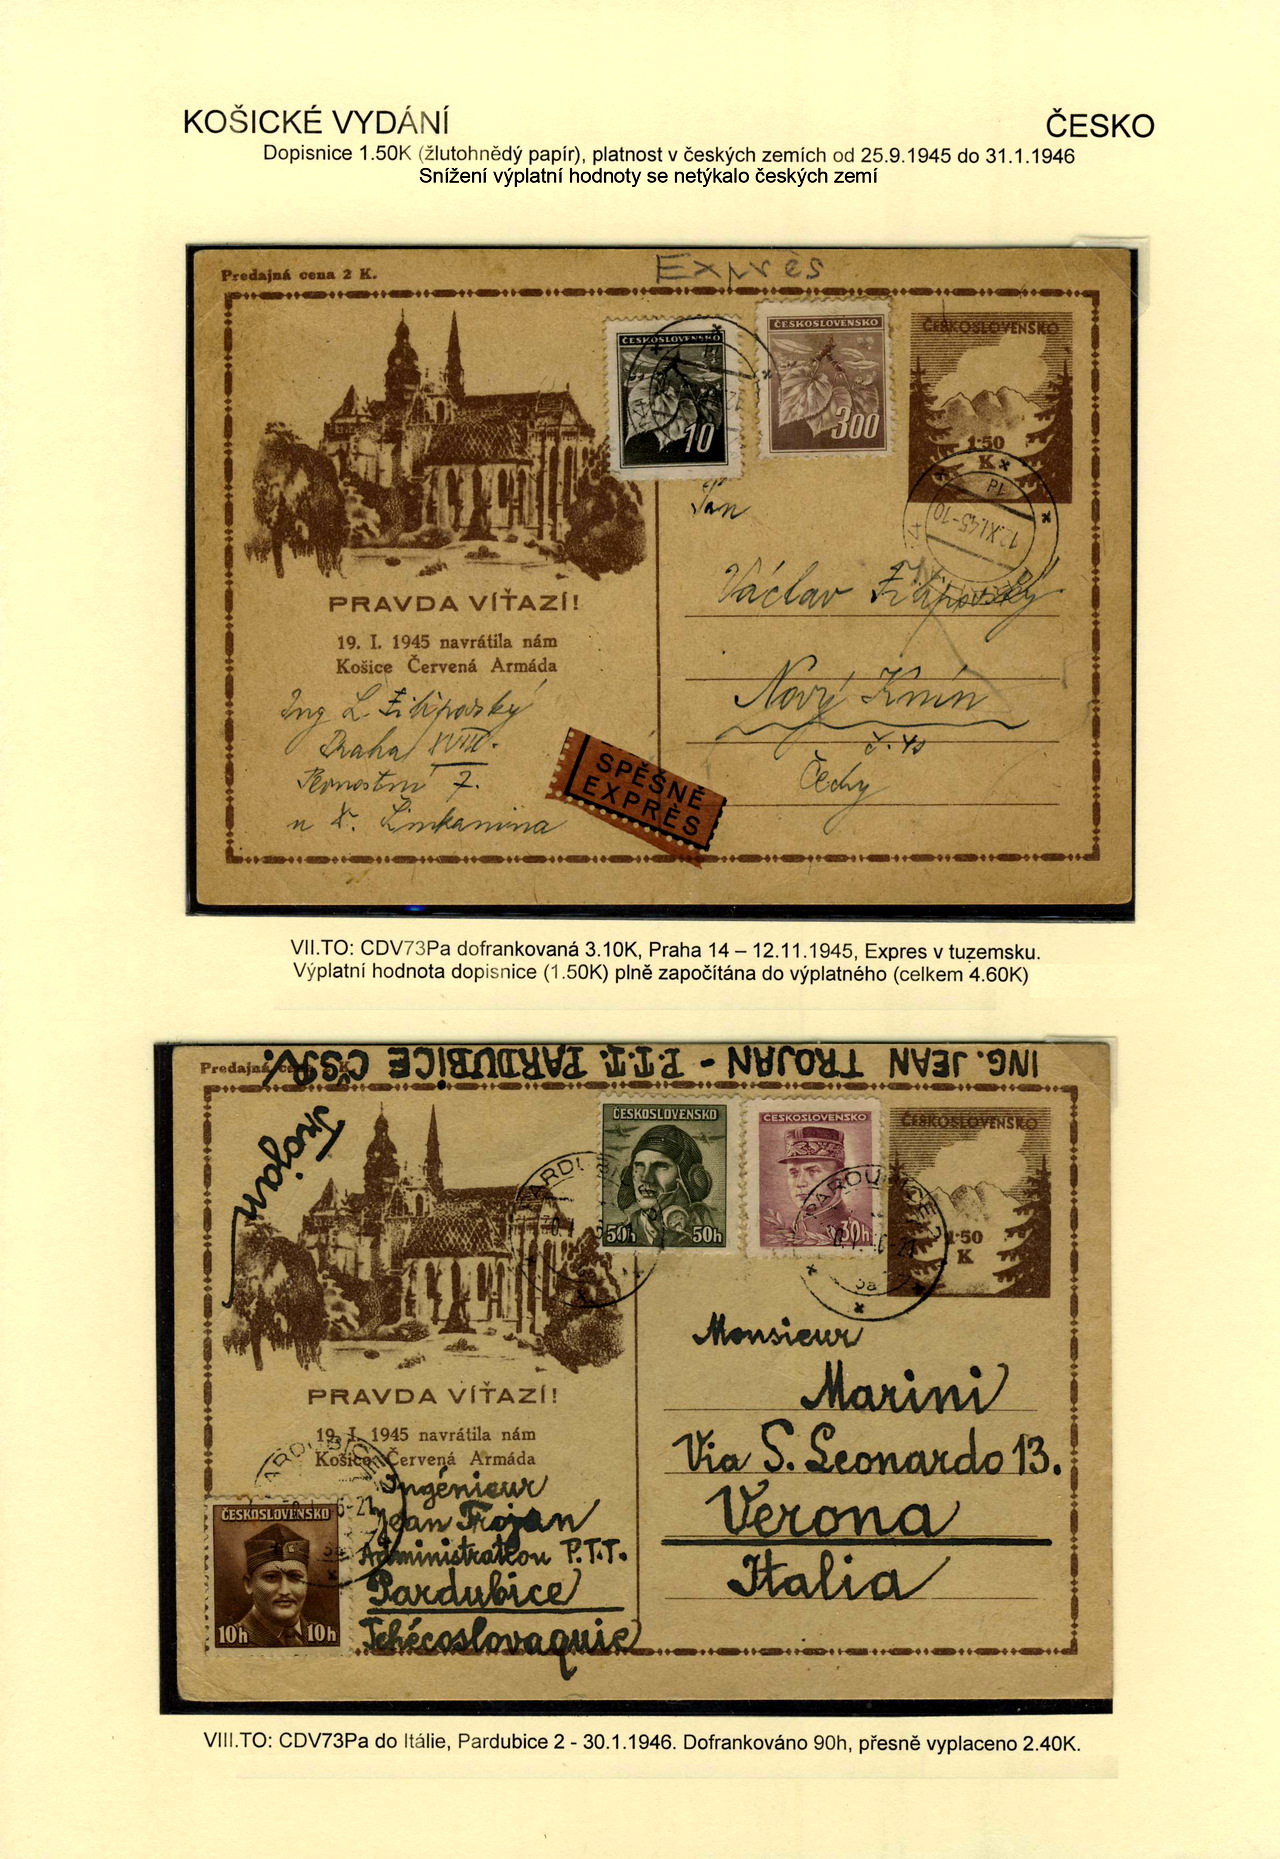 KOŠICKÉ VYDÁNÍ
ČESKO
Dopisnice 1.50K (žlutohnědý papír), platnost v českých zemích od 25.9.1945 do 31.1.1946
Snížení výplatní hodnoty se netýkalo českých zemí
Predajná cena 2 K.
Expres
ČESKOSLOVENSKO
10
ČESKOSLOVENSKO
300
ČESKOSLOVENSKO
1·50
K
12.XI.45-10
Pan
Václav Filipovský
Nový Knín
č. 40
Čechy
PRAVDA VÍŤAZÍ!
19. I. 1945 navrátila nám
Košice Červená Armáda
Ing L. Filipovský
Praha XVIII.
7.
SPĚŠNÉ
EXPRÈS
VII.TO: CDV73Pa dofrankovaná 3.10K, Praha 14 – 12.11.1945, Expres v tuzemsku.
Výplatní hodnota dopisnice (1.50K) plně započítána do výplatného (celkem 4.60K)
ING. JEAN TROJAN - P.T.T. PARDUBICE ČSR.
Predajná
Trojan
ČESKOSLOVENSKO
50h 50h
ČESKOSLOVENSKO
30h
ČESKOSLOVENSKO
1·50
K
PARDUBICE 2
Monsieur
Marini
Via S. Leonardo 13.
Verona
Italia
PRAVDA VÍŤAZÍ!
19. I. 1945 navrátila nám
Košice Červená Armáda
Ingénieur
Jean Trojan
Administrateur P.T.T.
Pardubice
Tchécoslovaquie
ČESKOSLOVENSKO
10h 10h
VIII.TO: CDV73Pa do Itálie, Pardubice 2 - 30.1.1946. Dofrankováno 90h, přesně vyplaceno 2.40K.